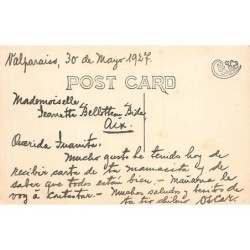 Valparaiso, 30 de Mayo 1927.
POST CARD
Mademoiselle,
Jeanette Bellotte
Aix.
Querida Juanita:
Mucho gusto he tenido hoy de
recibir carta de tu mamacita y de
saber que todos están bien. - Mañana la
voy à contestar. - Muchos saludos y besitos de
tu tío chileno Oscar.